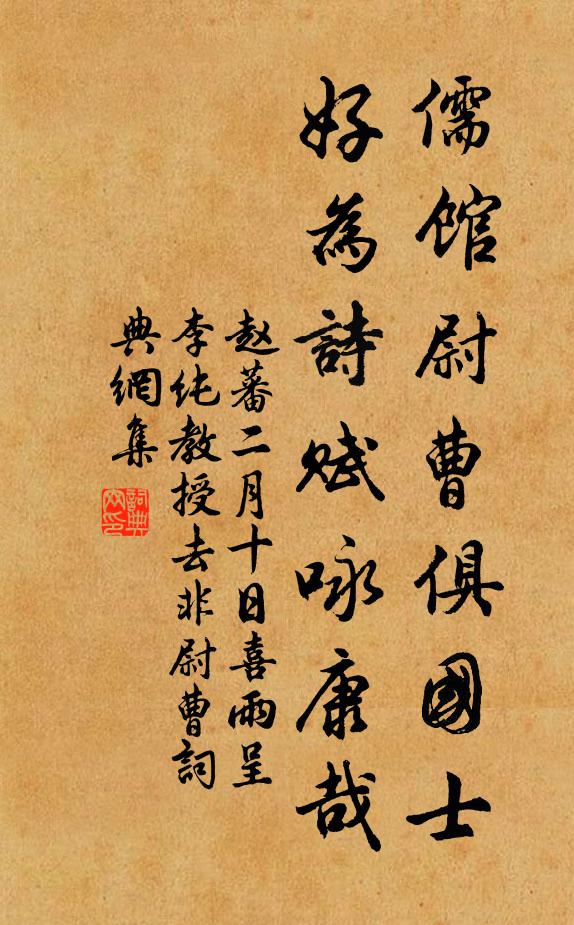 儒館尉曹俱國士
好為詩賦咏康哉
赵蕃二月十日喜雨呈
李純教授去非尉曹詞
典網集
詞典網印